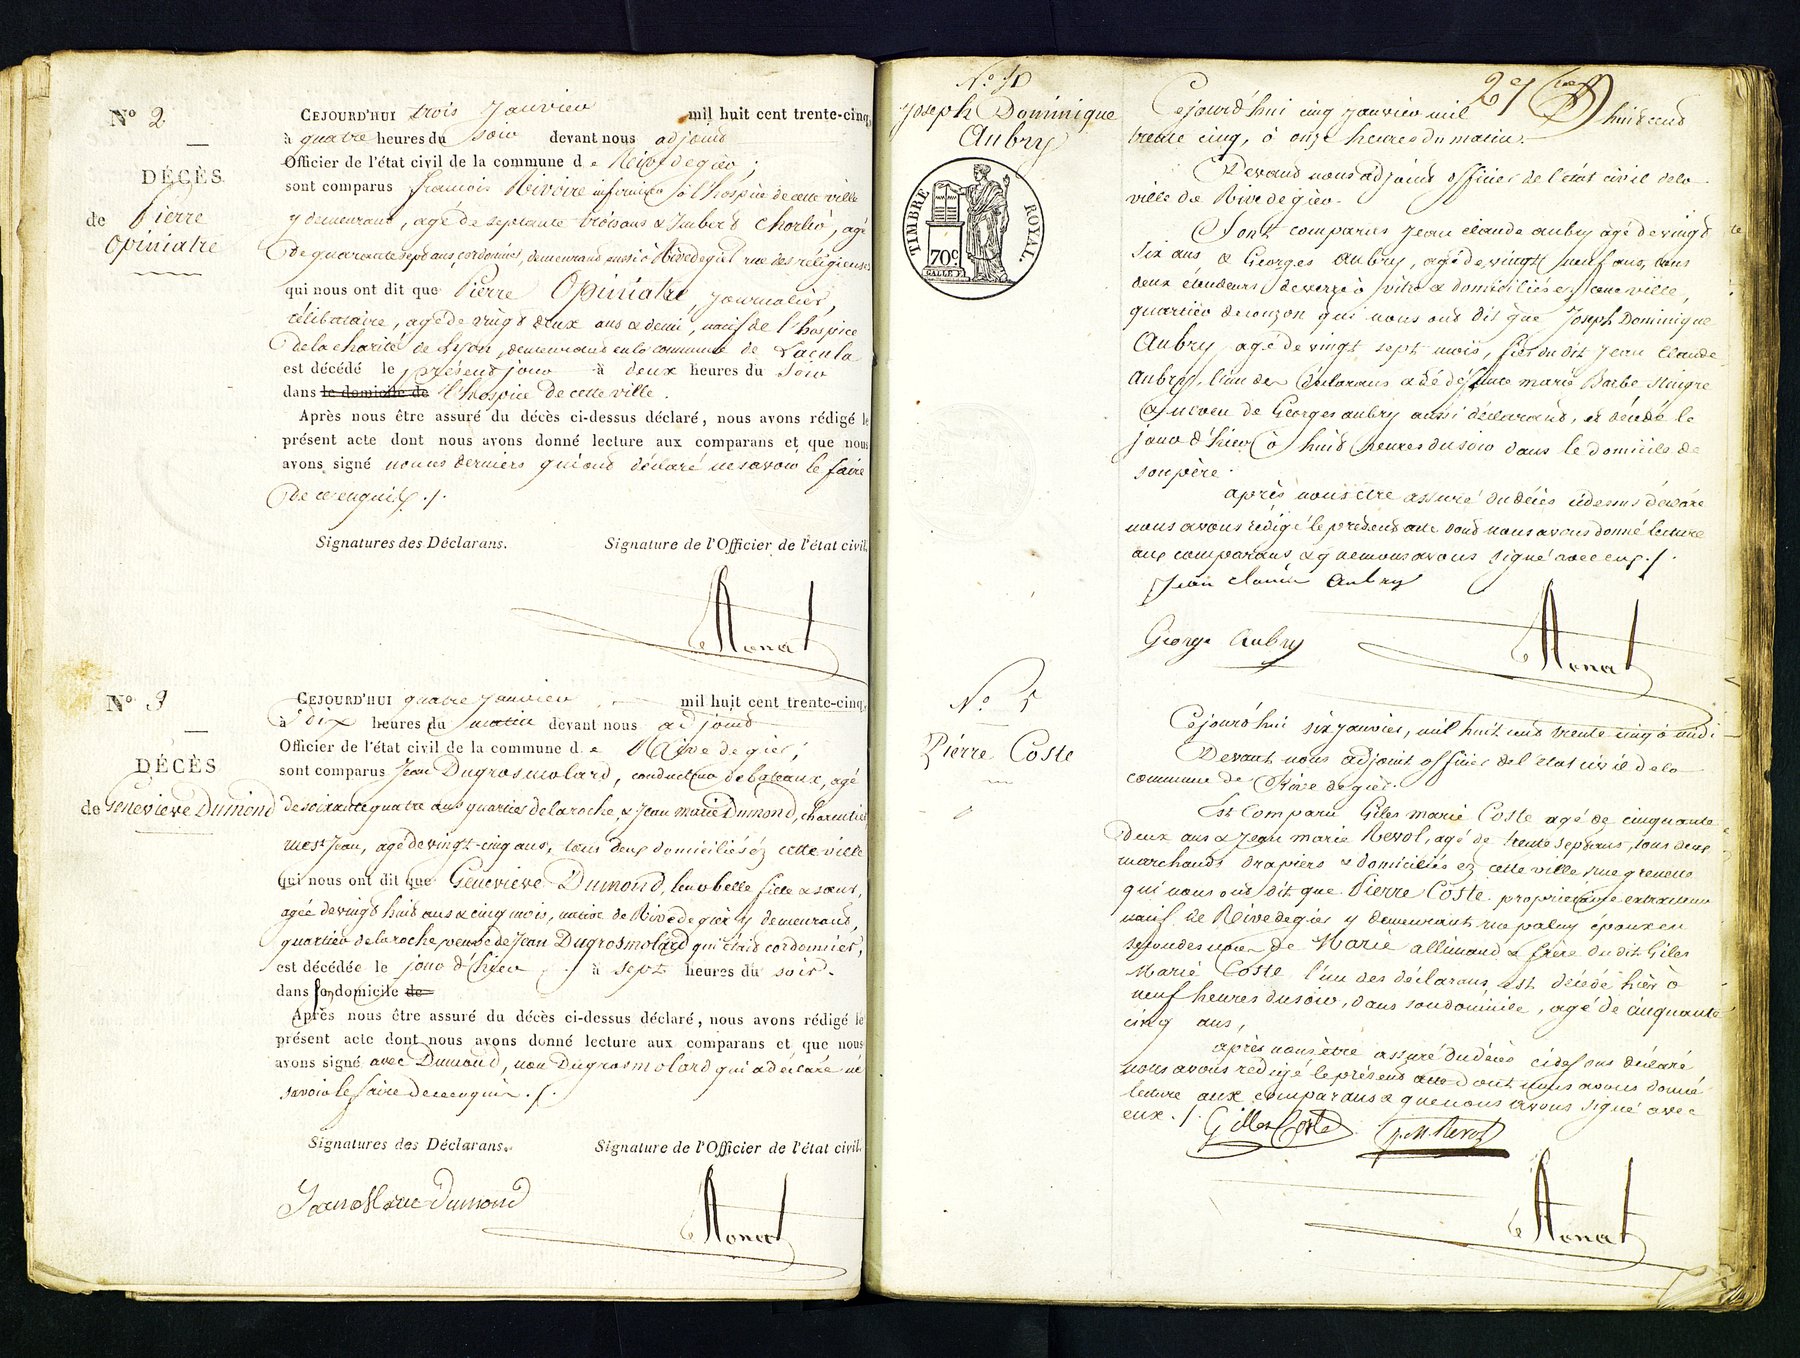 N° 2
DÉCÈS
de Pierre
Opiniatre
CEJOURD'HUI trois Janvier mil huit cent trente-cinq,
à quatre heures du soir devant nous adjoint
Officier de l'état civil de la commune de Rive de gier,
sont comparus françois Rivoire infirmier à l'hospice de cette ville
y demeurant, agé de septante trois ans & Imbert Chorlié, agé
de quarante sept ans, cordonnier, demeurand aussi à Rivedegier rue des religieuses
qui nous ont dit que Pierre Opiniatre, Journalier,
célibataire, agé de vingt deux ans & demi, natif de l'hospice
de la charité de Lyon, demeurand en la commune de
est décédé le présent jour à deux heures du soir
dans le domicile de l'hospice de cette ville.
Après nous être assuré du décès ci-dessus déclaré, nous avons rédigé le
présent acte dont nous avons donné lecture aux comparans et que nous
avons signé non ces derniers qui ont déclaré ne savoir le faire
de ce enquis ./.
Signatures des Déclarans. Signature de l'Officier de l'état civil.
N° 3
DÉCÈS
de Genevieve Dumond
CEJOURD'HUI quatre Janvier mil huit cent trente-cinq,
à dix heures du matin devant nous adjoint
Officier de l'état civil de la commune de Rive de gier,
sont comparus Jean Dugrosmolard, conducteur de bateaux, agé
de soixante quatre ans quartier de laroche, & Jean marie Dumond, charcutier
rue st Jean, agé de vingt-cinq ans, tous deux domiciliés en cette ville
qui nous ont dit que Genevieve Dumond, leur belle fille & sœur,
agée de vingt huit ans & cinq mois, native de Rive de gier y demeurand,
quartier de laroche, veuve de Jean Dugrosmolard qui était cordonnier,
est décédée le jour d'hier ./. à sept heures du soir.
dans son domicile de
Après nous être assuré du décès ci-dessus déclaré, nous avons rédigé le
présent acte dont nous avons donné lecture aux comparans et que nous
avons signé avec Dumond, non Dugrosmolard qui a déclaré ne
savoir le faire de ce enquis ./.
Signatures des Déclarans. Signature de l'Officier de l'état civil.
Jean Marie Dumond
27
N° 4
Joseph Dominique
Aubry
TIMBRE ROYAL.
70c
Cejourd'hui cinq Janvier mil huit cent
trente cinq, à onze heures du matin.
Devand nous adjoint officier de l'état civil de la
ville de Rive de gier.
Sont comparus Jean claude aubry agé de vingt
six ans & Georges Aubry, agé de vingt neuf ans, tous
deux étendeurs de verre à vitre & domiciliés en cette ville,
quartier de couzon qui nous ont dit que Joseph Dominique
Aubry, agé de vingt sept mois, fils du dit Jean Claude
Aubry, l'un des déclarans & de défunte marie Barbe Stingre
& neveu de Georges aubry aussi déclarand, est décédé le
jour d'hier à huit heures du soir dans le domicile de
son père.
après nous être assuré du décès cidessus déclaré
nous avons rédigé le présend acte dont nous avons donné lecture
aux comparans, & que nous avons signé avec eux ./.
Jean claude Aubry
George Aubry
N° 5
Pierre Coste
Cejourd'hui six janvier, mil huit cent trente cinq à midi
Devant nous adjoint officier de l'état civil de la
commune de Rive de gier.
Est Comparu Giles marie Coste agé de cinquante
deux ans & Jean marie Revol, agé de trente sept ans, tous deux
marchands drapiers & domiciliés en cette ville rue grenette
qui nous ont dit que Pierre Coste, propriétaire extracteur
natif de Rive de gier y demeurant rue paluy époux en
secondes noces de Marie allimand & frère du dit Giles
Marie Coste l'un des déclarans, est décédé hier à
neuf heures du soir, dans son domicile, agé de cinquante
cinq ans,
après nous être assuré du décès cidessus déclaré
nous avons rédigé le présend acte dont nous avons donné
lecture aux comparans & que nous avons signé avec
eux ./.
Gilles Coste J. M. Revol